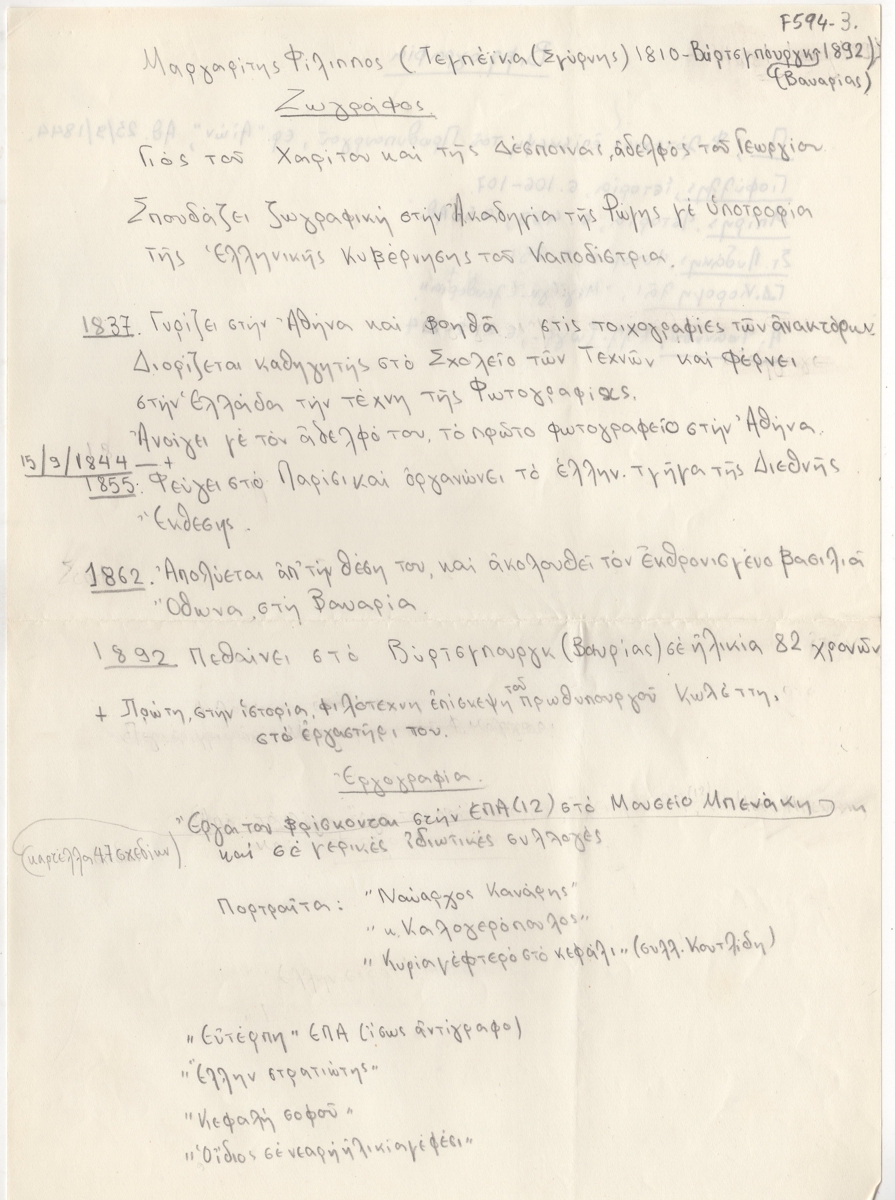 F594-3.
Μαργαρίτης Φίλιππος (Τεμπέϊκα (Σμύρνης) 1810-Βύρτσμπουργκ 1892)
(Βαυαρίας)
Ζωγράφος.
Γιὸς τοῦ Χαρίτου καὶ τῆς Δέσποινας, ἀδελφὸς τοῦ Γεωργίου
Σπουδάζει ζωγραφικὴ στὴν Ἀκαδημία τῆς Ρώμης μὲ ὑποτροφία
τῆς Ἑλληνικῆς Κυβέρνησης τοῦ Καποδίστρια.
1837. Γυρίζει στὴν Ἀθήνα καὶ βοηθᾶ στὶς τοιχογραφίες τῶν ἀνακτόρων.
Διορίζεται καθηγητὴς στὸ Σχολεῖο τῶν Τεχνῶν καὶ φέρνει
στὴν Ἑλλάδα τὴν τέχνη τῆς Φωτογραφίας.
Ἀνοίγει μὲ τὸν ἀδελφό του, τὸ πρῶτο φωτογραφεῖο στὴν Ἀθήνα.
15/9/1844 — +
1855: Φεύγει στὸ Παρίσι καὶ ὀργανώνει τὸ ἑλλην. τμῆμα τῆς Διεθνῆς
Ἔκθεσης.
1862. Ἀπολύεται ἀπ' τὴν θέση του, καὶ ἀκολουθεῖ τὸν ἐκθρονισμένο βασιλιᾶ
Ὄθωνα, στὴ Βαυαρία.
1892 Πεθαίνει στὸ Βύρτσμπουργκ (Βαυρίας) σὲ ἡλικία 82 χρονῶν
+ Πρώτη, στὴν ἱστορία, φιλότεχνη ἐπίσκεψη τοῦ πρωθυπουργοῦ Κωλέττη,
στὸ ἐργαστήρι του.
Ἐργογραφία.
Ἔργα του βρίσκονται στὴν ΕΠΑ (12) στὸ Μουσεῖο Μπενάκη
(καρτέλλα 47 σχεδίων)
καὶ σὲ μερικὲς ἰδιωτικὲς συλλογὲς
Πορτραῖτα: "Ναύαρχος Κανάρης"
"κ. Καλογερόπουλος"
"Κυρία μὲ φτερὸ στὸ κεφάλι" (συλλ. Κουτλίδη)
"Εὐτέρπη" ΕΠΑ (ἴσως ἀντίγραφο)
"Ἕλλην στρατιώτης"
"Κεφαλὴ σοφοῦ"
"Ὁ ἴδιος σὲ νεαρὴ ἡλικία μὲ φέσι"